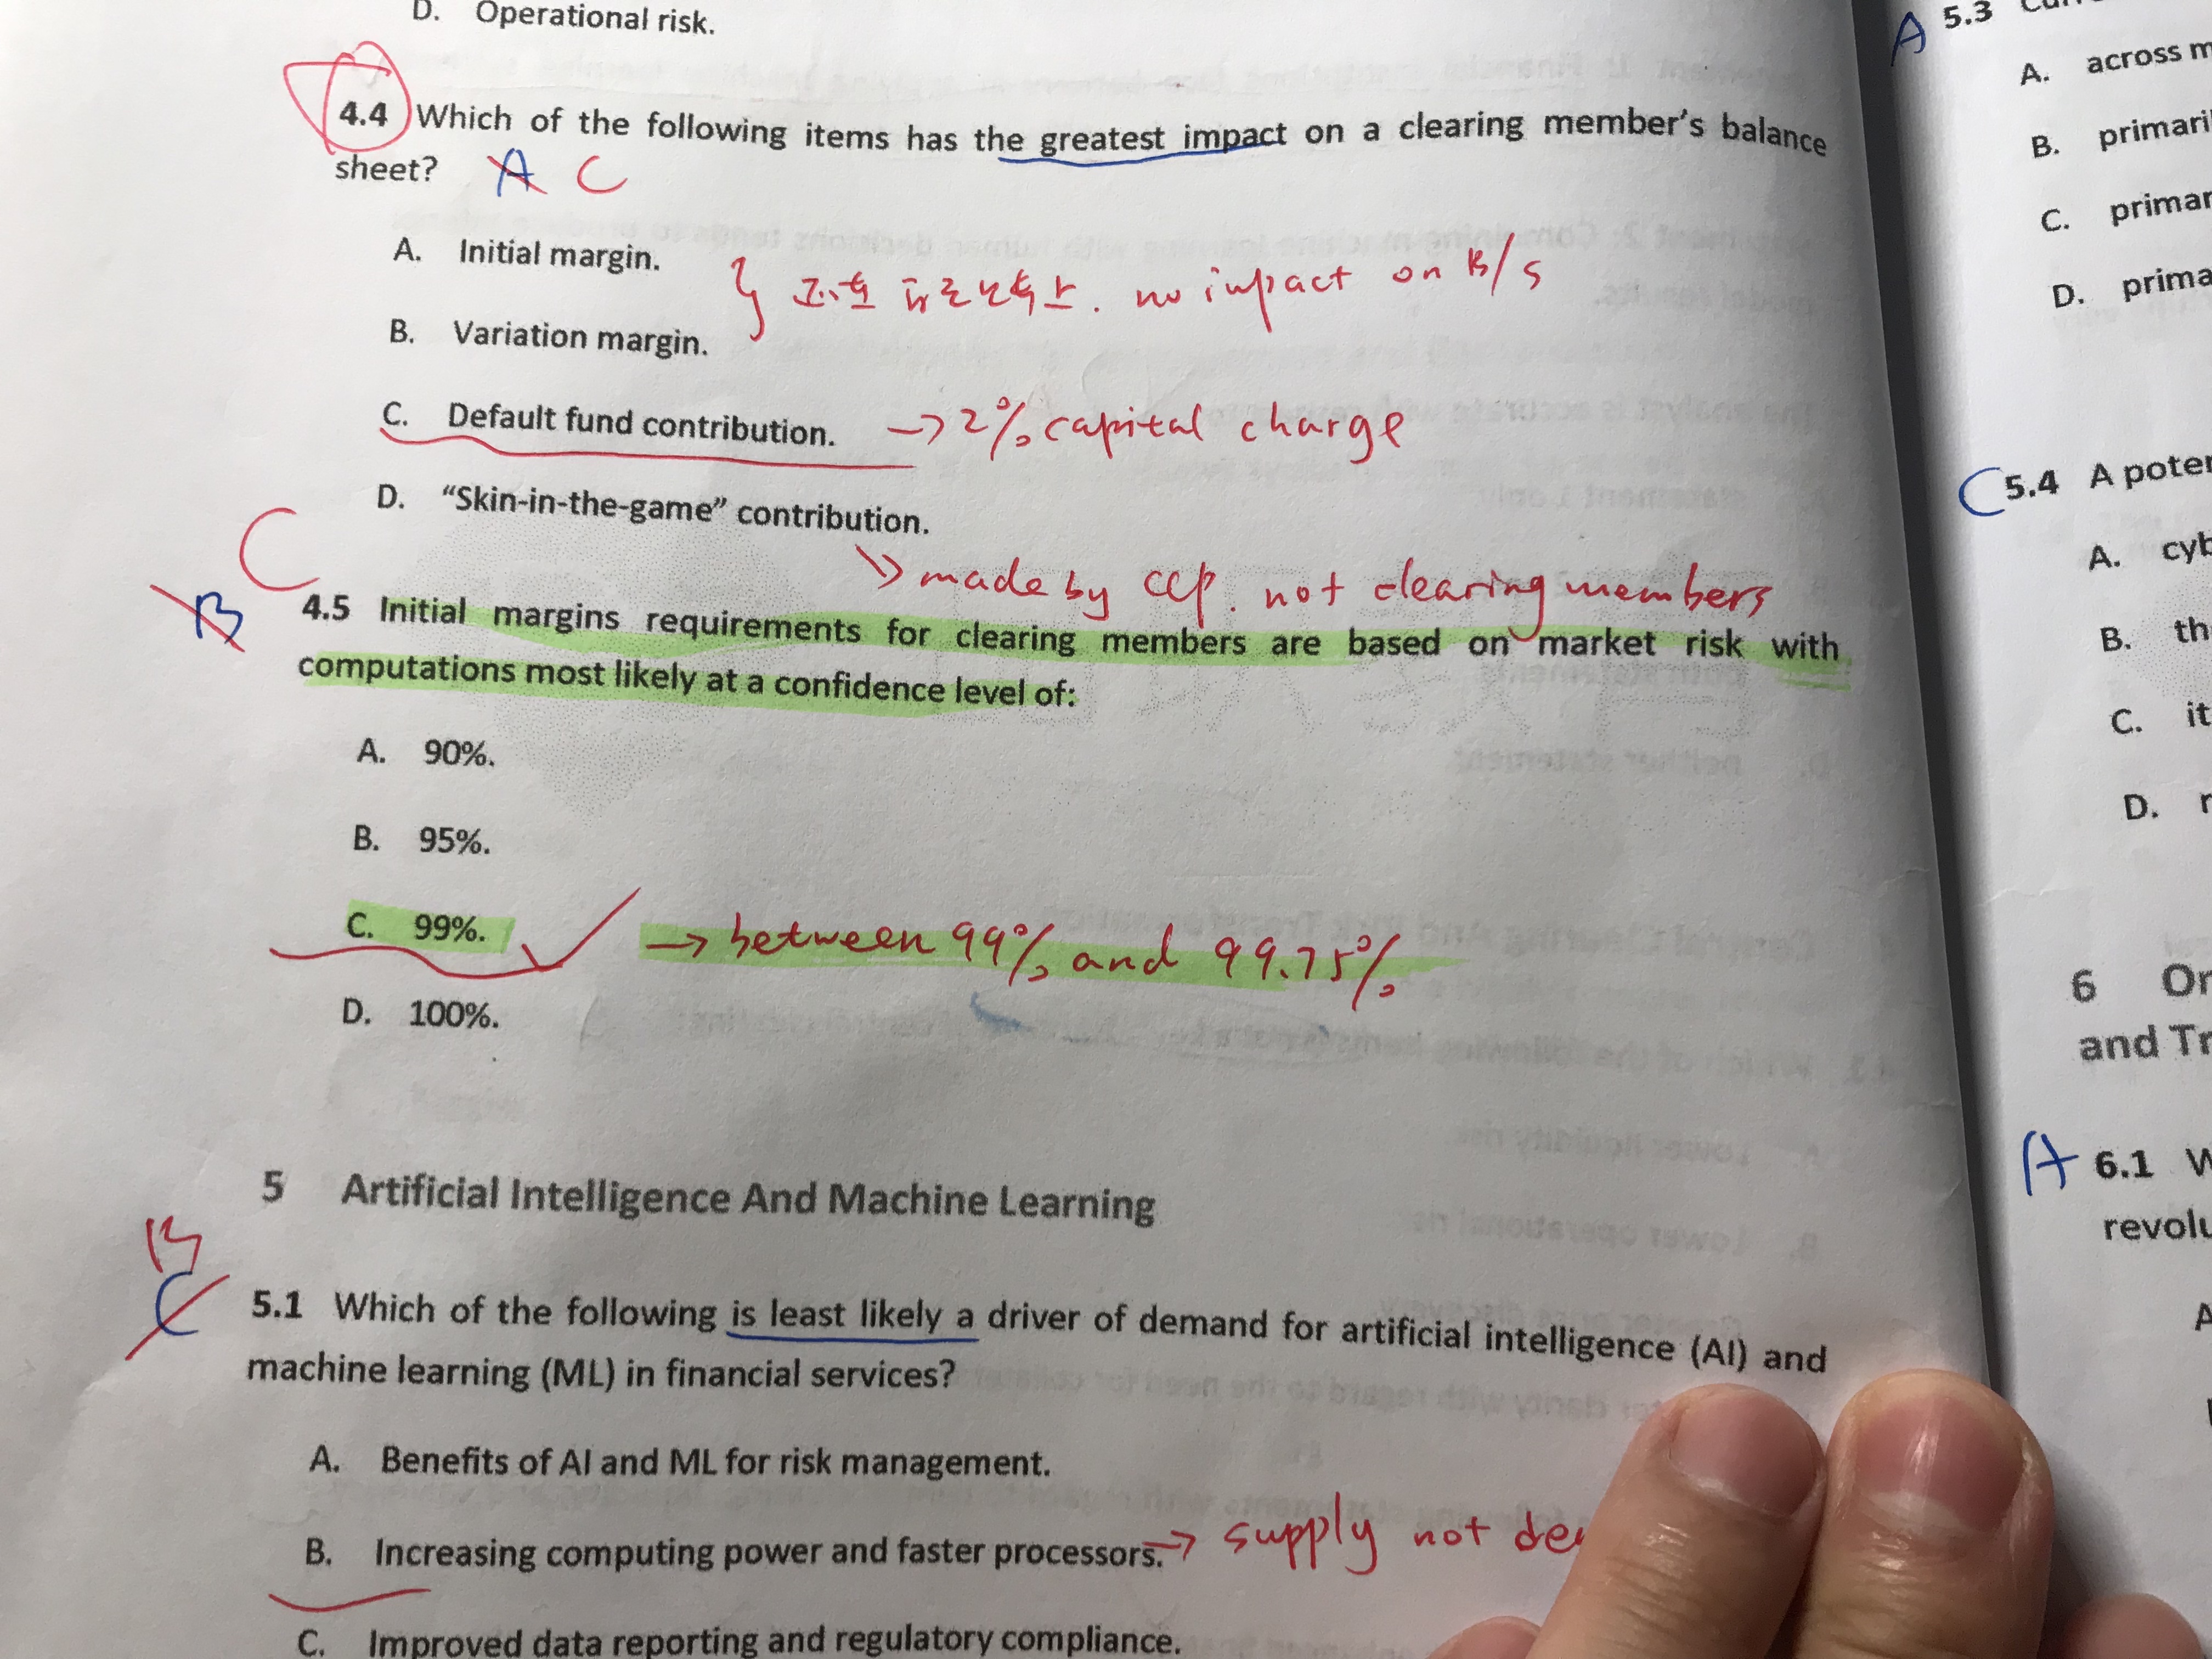 D. Operational risk.
4.4 Which of the following items has the greatest impact on a clearing member's balance
sheet? A C
A. Initial margin.
no impact on B/S
B. Variation margin.
C. Default fund contribution. → 2% capital charge
D. "Skin-in-the-game" contribution.
made by CCP. not clearing members
C
B
4.5 Initial margins requirements for clearing members are based on market risk with
computations most likely at a confidence level of:
A. 90%.
B. 95%.
C. 99%. → between 99% and 99.75%
D. 100%.
5 Artificial Intelligence And Machine Learning
B
C
5.1 Which of the following is least likely a driver of demand for artificial intelligence (AI) and
machine learning (ML) in financial services?
A. Benefits of AI and ML for risk management.
B. Increasing computing power and faster processors. → supply not
C. Improved data reporting and regulatory compliance.
A 5.3
A. across
B.
C.
D.
C 5.4 A
A.
B.
C. it
D.
6
and
A 6.1